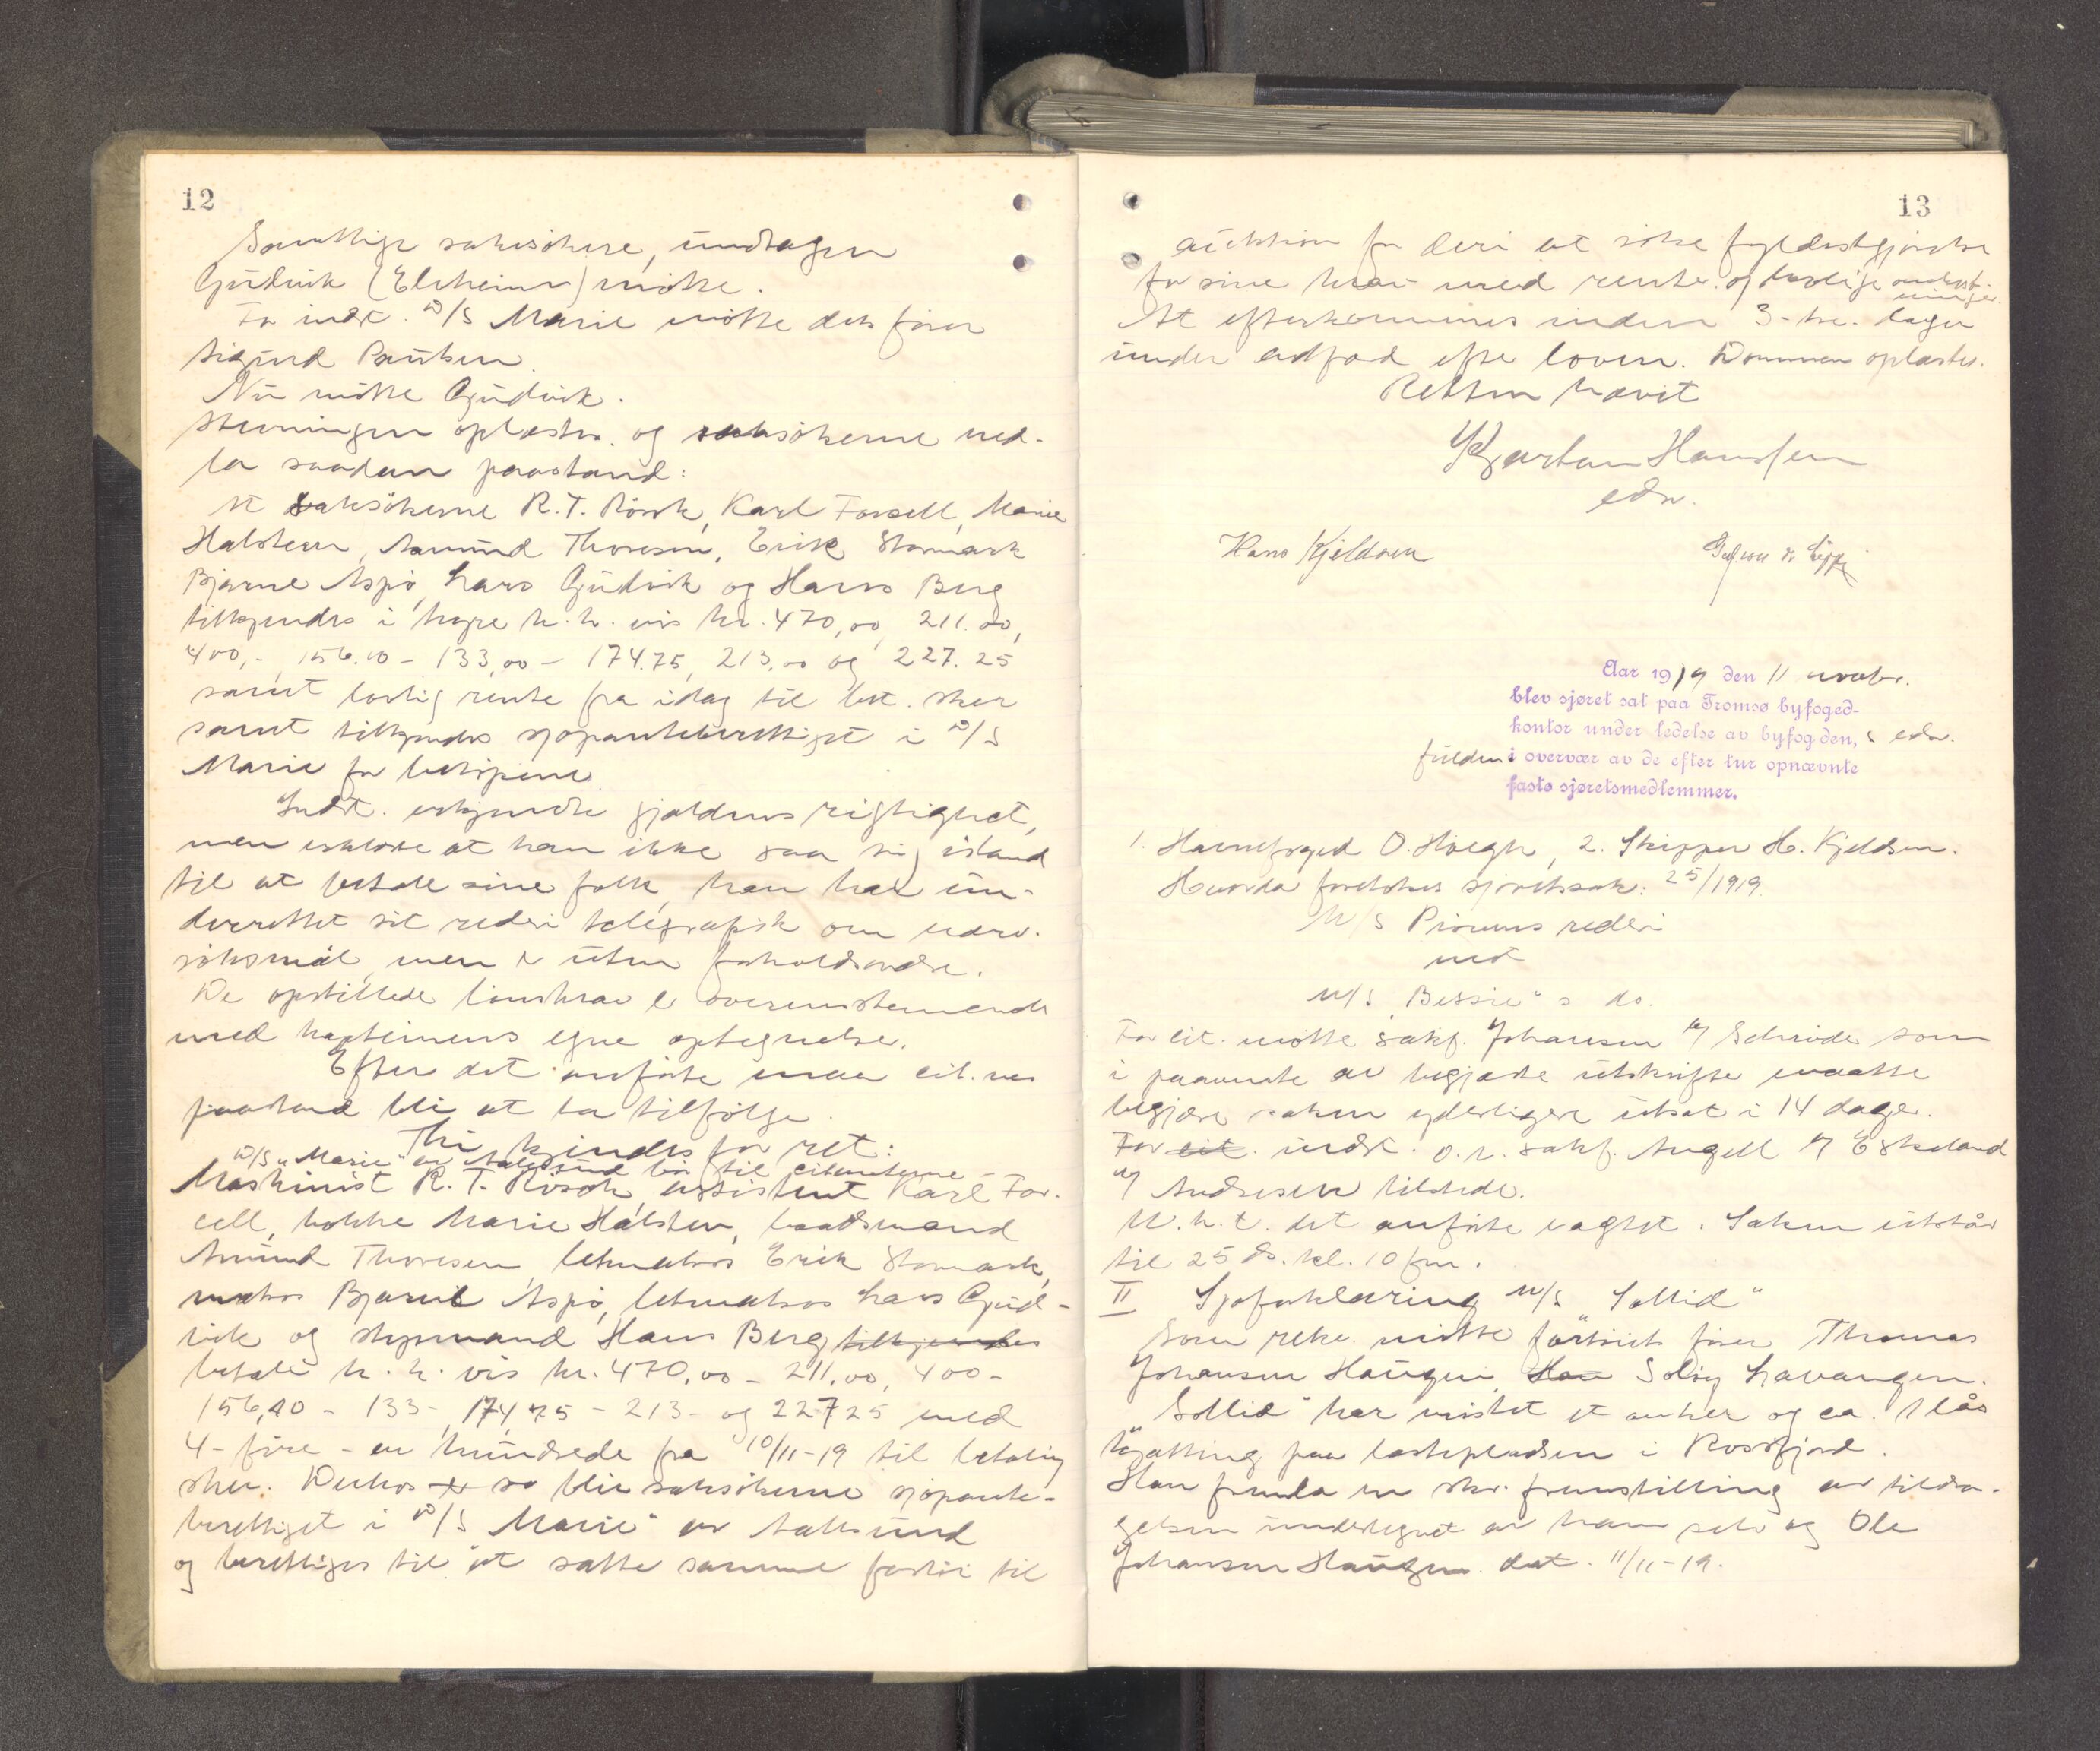 12
Samtlige saksøkere, undtagen
Gudvik (Elvheim) møtte.
For indst. D/S Marie møtte dets fører
Sigurd Paulsen.
Nu møtte Gudvik.
Stevningen oplæstes og saksøkerne ned-
la saadan paastand:
At saksøkerne R. T. Rösok, Karl Forsell, Marie
Halsteen, Amund Thoresen, Erik Stormark
Bjarne Aspö, Lars Gudvik og Hans Berg
tilkjendes i hyre h. h. vis kr. 470,00, 211.00,
400,-, 156.10 - 133,00 - 174.75, 213.00 og 227.25
samt lovlig rente fra idag til bet. sker
samt tilkjendes sjøpanteberettiget i D/S
Marie for beløpene.
Indst. erkjendte gjældens rigtighet,
men erklærte at han ikke saa sig istand
til at betale sine folk, han har un-
derrettet sit rederi telegrafisk om nærv.
søksmål, men er uten forholdsordre.
De opstillede lønskrav er overensstemmende
med kapteinens egne optegnelser.
Efter det anførte maa cit.nes
paastand bli at ta tilfølge.
Thi kjendes for ret:
D/S "Marie" av Aalesund bør til citanterne -
Maskinist R. T. Rösok, assistent Karl For-
sell, kokke Marie Halsten, baadsmand
Amund Thoresen, letmatros Erik Stormark,
matros Bjarne Aspö, letmatros Lars Gud-
vik og styrmand Hans Berg tilkjendes
betale h. h. vis kr. 470,00 - 211,00, 400 -
156,10 - 133 - 174,75 - 213 - og 227 25 med
4 - fire - av hundrede fra 10/11-19 til betaling
sker. Derhos er so blir saksøkerne sjøpante-
berettiget i D/S "Marie" av Aalesund
og berettiges til at sætte samme skib til
13
auktion for deri at søke fyldestgjørelse
for sine krav med renter og lovlige omkost-
ninger.
At efterkommes inden 3 - tre - dager
under adfærd efter loven. Dommen oplæstes.
Retten hævet
Kjartan Hansen
edsv.
Hans Kjeldsen
Aar 1919 den 11 novbr.
blev sjøret sat paa Tromsø byfoged-
kontor under ledelse av byfogden, s edsv.
fuldm i overvær av de efter tur opnævnte
faste sjøretsmedlemmer.
1. Havnefoged O. Høegh, 2. Skipper H. Kjeldsen.
Hvorda foretokes sjøretssak: 25/1919.
M/S Pioners rederi
mot
M/S "Bessie"s do.
For cit. møtte sakf. Johansen f/ Schrøder som
i paavente av begjærte utskrifter maatte
begjære saken yderligere utsat i 14 dager.
For cit. indst. o.r.sakf. Angell f/ Eskeland
f/ Andresen tilstede.
M. h. t. det anførte vagtet. Saken utstår
til 25 ds. kl. 10 fm.
II Sjøforklaring M/S "Sollid"
Som rekv. møtte fartøiets fører Thomas
Johansen Haugen, Han Soløy Lavangen.
"Sollid" har mistet et anker og ca. 1 lås
kjætting paa lasteplassen i Rossfjord.
Han fremla en skr. fremstilling av tildra-
gelsen undertegnet av ham selv og Ole
Johansen Haugen dat. 11/11-19.